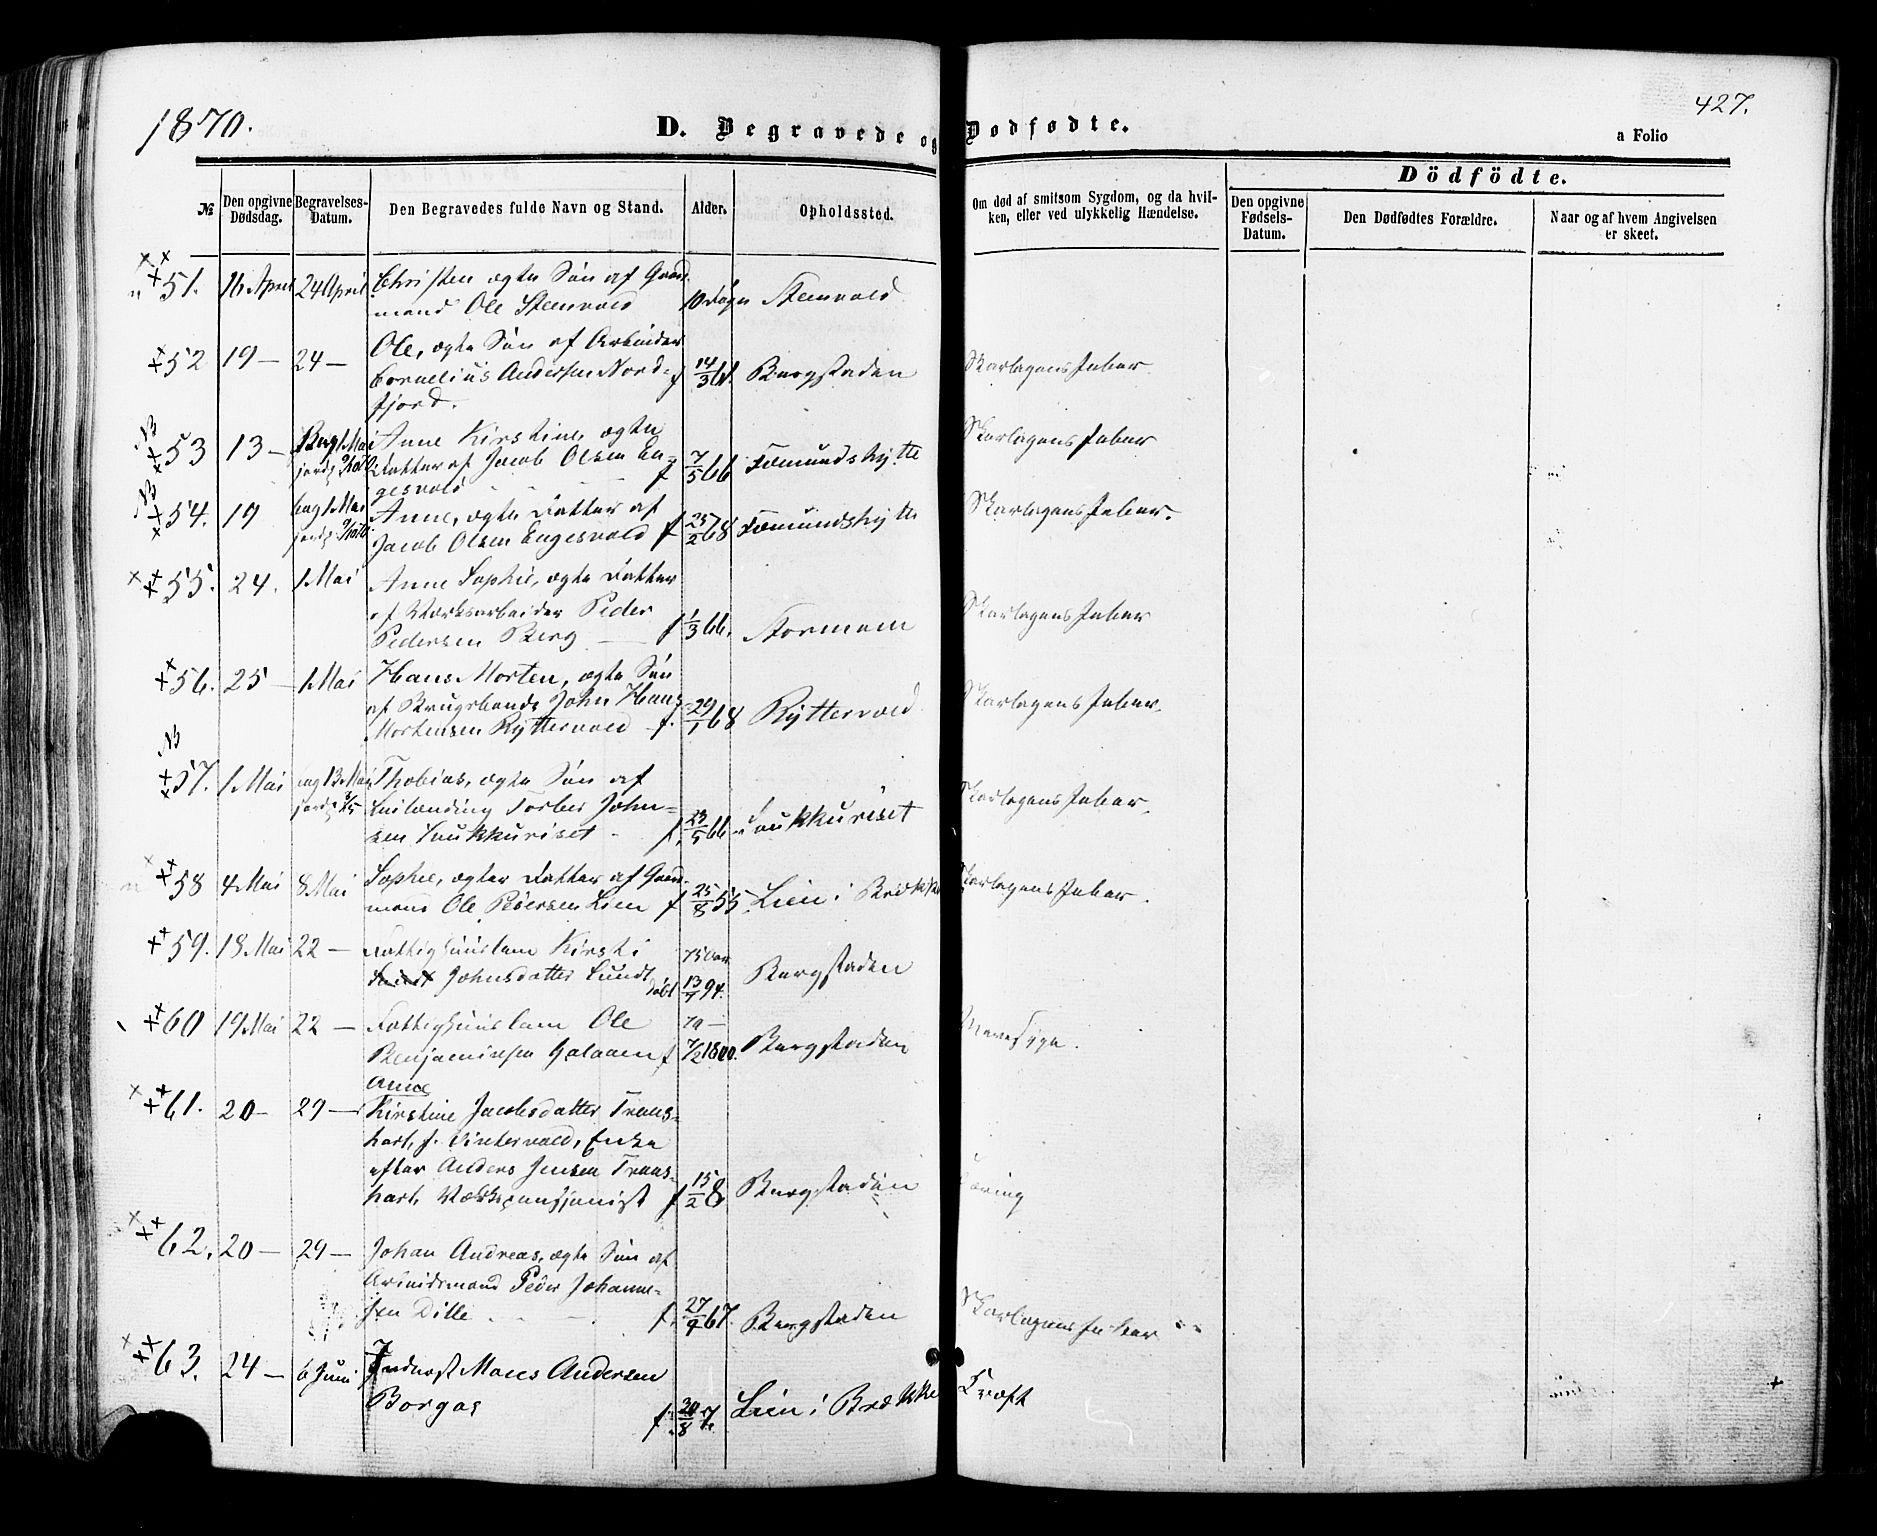 1870.
D. Begravede og Dødfødte.
427.
a Folio
№
Den opgivne Dødsdag.
Begravelses-Datum.
Den Begravedes fulde Navn og Stand.
Alder.
Opholdssted.
Om død af smitsom Sygdom, og da hvilken, eller ved ulykkelig Hændelse.
Dödfödte.
Den opgivne Fødsels-Datum.
Den Dødfødtes Forældre.
Naar og af hvem Angivelsen er skeet.
51. 16 April 24 April Christen ægte Søn af Gaard-
mand Ole Stenvold 10 Døgn Stenvold
52 19 — 24 — Ole, ægte Søn af Arbeider
Cornelius Andersen Nord- f 14/3 61. Bergstaden Skarlagensfeber.
fjord.
53 13 — Begr 1 Mai Anne Kirstine, ægte
jordf Datter af Jacob Olsen En-
gesvold f 7/5 66 Fæmundshytte Skarlagensfeber
54. 19 beg 1 Mai Anne, ægte Datter af
jordf Jacob Olsen Engesvold f 25/2 68 Fæmundshytte Skarlagensfeber.
55. 24. 1 Mai Anne Sophie, ægte Datter
af Værksarbeider Peder
Pedersen Berg — f 1/3 66. Stormoen Skarlagensfeber
56. 25 — 1 Mai Hans Morten, ægte Søn
af Brugsbonde John Hans
Mortensen Ryttervold f. 29/1 68 Ryttervold Skarlagensfeber.
57. 1 Mai beg 13 Mai Thobias, ægte Søn af
jordf 8/5 Indlænding Torber John-
sen Loukkuriset f. 23/5 66 Loukkuriset Skarlagensfeber.
58 4 Mai 8 Mai Sophie, ægte Datter af Gaard-
mand Ole Pedersen Lien f 25/8 55. Lien i Brekke Skarlagensfeber.
59. 18 Mai 22 — Fattighuuslem Kirsti 75 Aar
Johnsdatter Lundt døbt 13/7 94. Bergstaden
60 19 Mai 22 — Fattighuuslem Ole 70 —
Benjaminsen Galaaen f 7/2 1800. Bergstaden
Anne
61. 20 — 29 — Kirstine Jacobsdatter Trons-
hart, f. Vintervold, Enke
efter Anders Jensen Trons-
hart, f 15/2 8 Bergstaden Tæring
62. 20 — 29 — Johan Andreas, ægte Søn af
Arbeidsmand Peder Johanne-
sen Dille f. 27/9 67. Bergstaden Skarlagensfeber
63. 24 — 6 Juni Inderst Mons Andersen
Borgos f. 20/8 7. Lien i Brekke Kræft